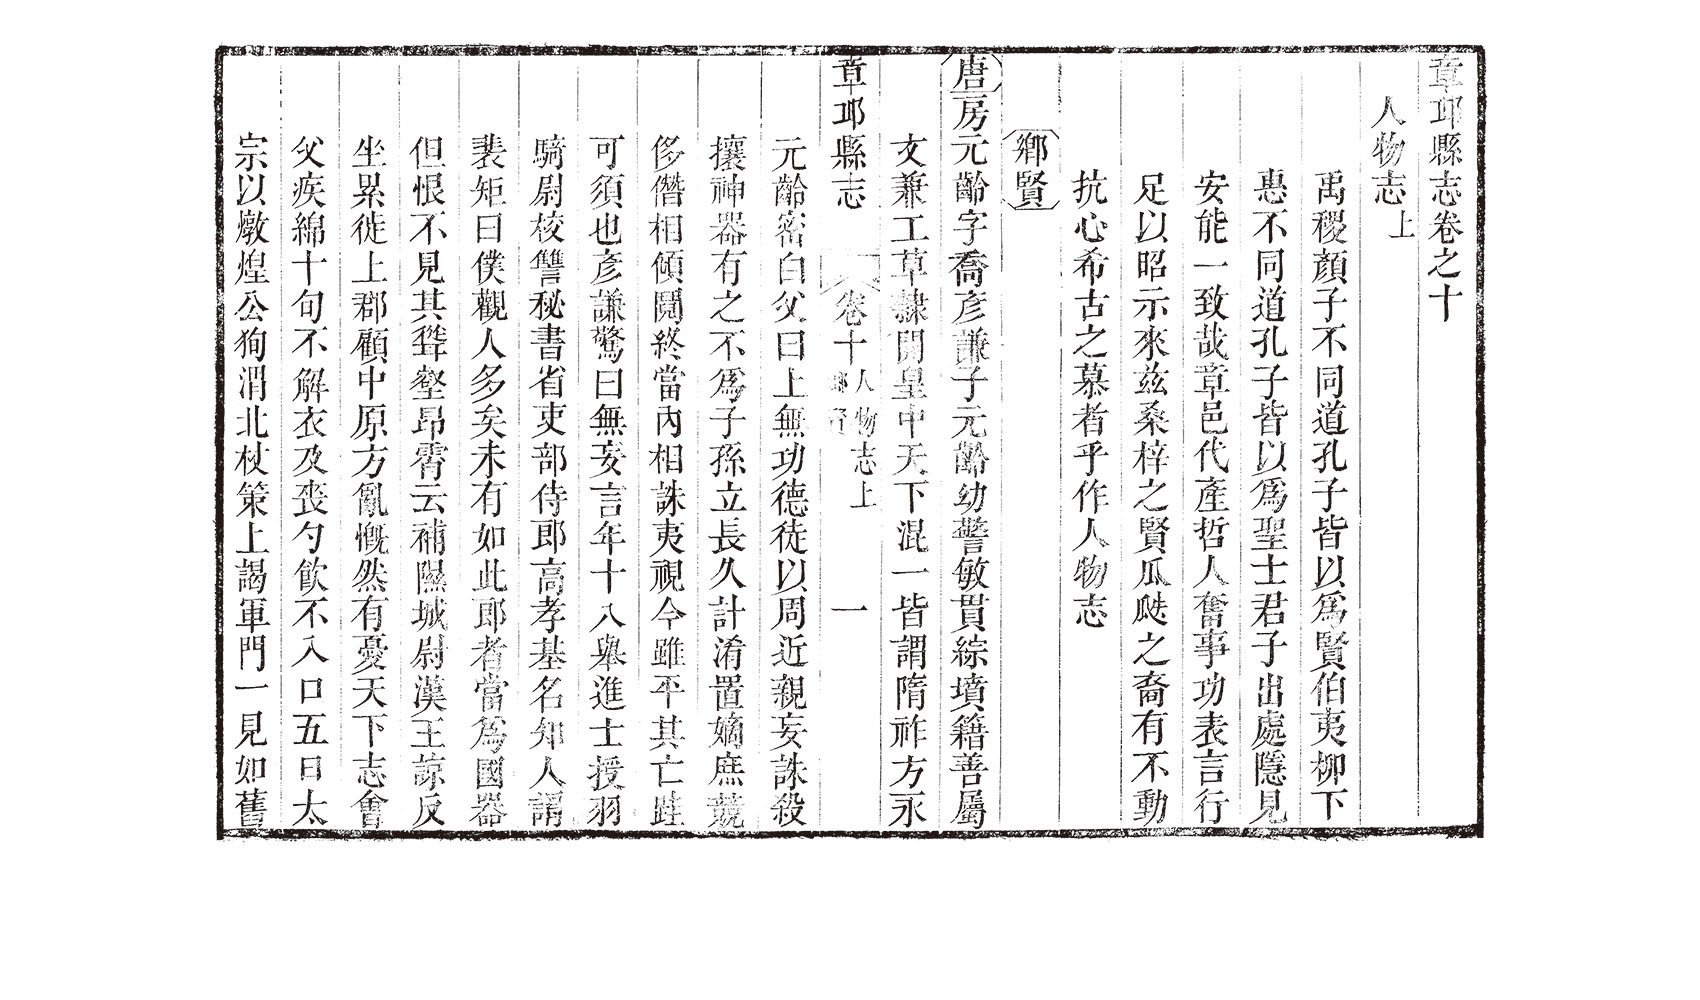 章邱縣志卷之十
人物志上
禹稷顏子不同道孔子皆以爲賢伯夷柳下
惠不同道孔子皆以爲聖士君子出處隱見
安能一致哉章邑代產哲人奮事功表言行
足以昭示來茲桑梓之賢瓜瓞之裔有不動
抗心希古之慕者乎作人物志
鄉賢
唐房元齡字喬彥謙子元齡幼警敏貫綜墳籍善屬
文兼工草隸開皇中天下混一皆謂隋祚方永
章邱縣志 卷十 人物志上 鄉賢 一
元齡密白父曰上無功德徒以周近親妄誅殺
攘神器有之不爲子孫立長久計淆置嫡庶競
侈僭相傾鬩終當內相誅夷視今雖平其亡跬
可須也彥謙驚曰無妄言年十八舉進士授羽
騎尉校讐秘書省吏部侍郎高孝基名知人謂
裴矩曰僕觀人多矣未有如此郎者當爲國器
但恨不見其聳壑昂霄云補隰城尉漢王諒反
坐累徙上郡顧中原方亂慨然有憂天下志會
父疾綿十旬不解衣及喪勺飲不入口五日太
宗以燉煌公狥渭北杖策上謁軍門一見如舊